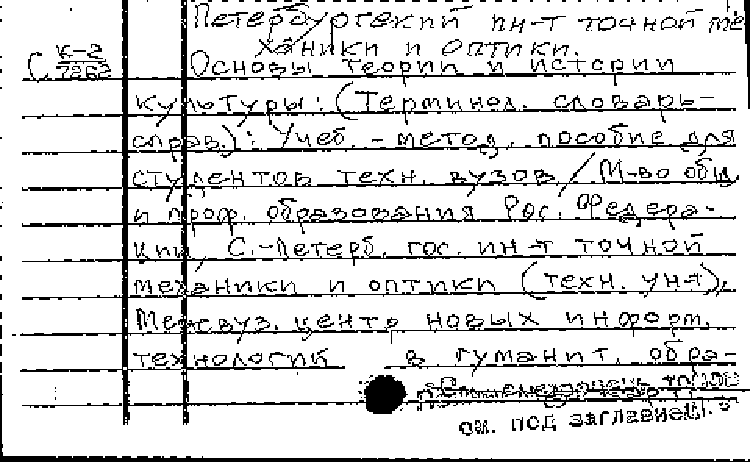 Петербургский ин-т точной ме
ханики и оптики.
С К-2
7862
Основы теории и истории
культуры: (Терминол. словарь-
справ.): Учеб.-метод. пособие для
студентов техн. вузов / М-во общ.
и проф. образования Рос. Федера-
ции, С.-Петерб. гос. ин-т точной
механики и оптики (техн. ун-т),
Межвуз. центр новых информ.
технологик в гуманит. обра-
см. под заглавием: